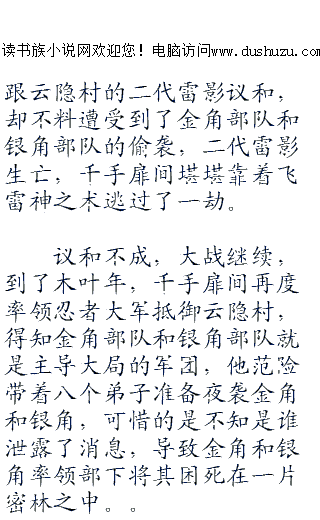 读书族小说网欢迎您！电脑访问www.dushuzu.com
跟云隐村的二代雷影议和，
却不料遭受到了金角部队和
银角部队的偷袭，二代雷影
生亡，千手扉间堪堪靠着飞
雷神之术逃过了一劫。
议和不成，大战继续，
到了木叶年，千手扉间再度
率领忍者大军抵御云隐村，
得知金角部队和银角部队就
是主导大局的军团，他范险
带着八个弟子准备夜袭金角
和银角，可惜的是不知是谁
泄露了消息，导致金角和银
角率领部下将其困死在一片
密林之中。。